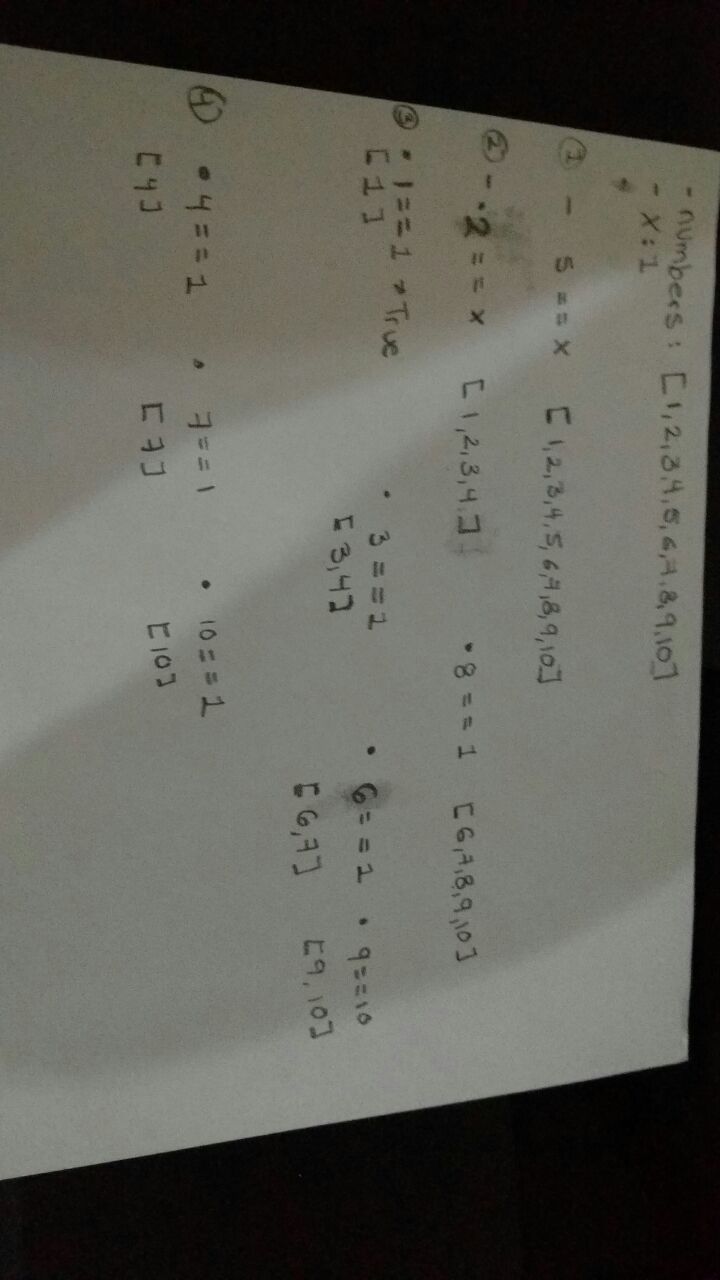 - numbers: [1,2,3,4,5,6,7,8,9,10]
- X: 1
① - 5 == x [1,2,3,4,5,6,7,8,9,10]
② - • 2 == x [1,2,3,4] • 8 == 1 [6,7,8,9,10]
③ • 1 == 1 → True • 3 == 1 • 6 == 1 • 9 == 10
[1] [3,4] [6,7] [9,10]
④ • 4 == 1 • 7 == 1 • 10 == 1
[4] [7] [10]